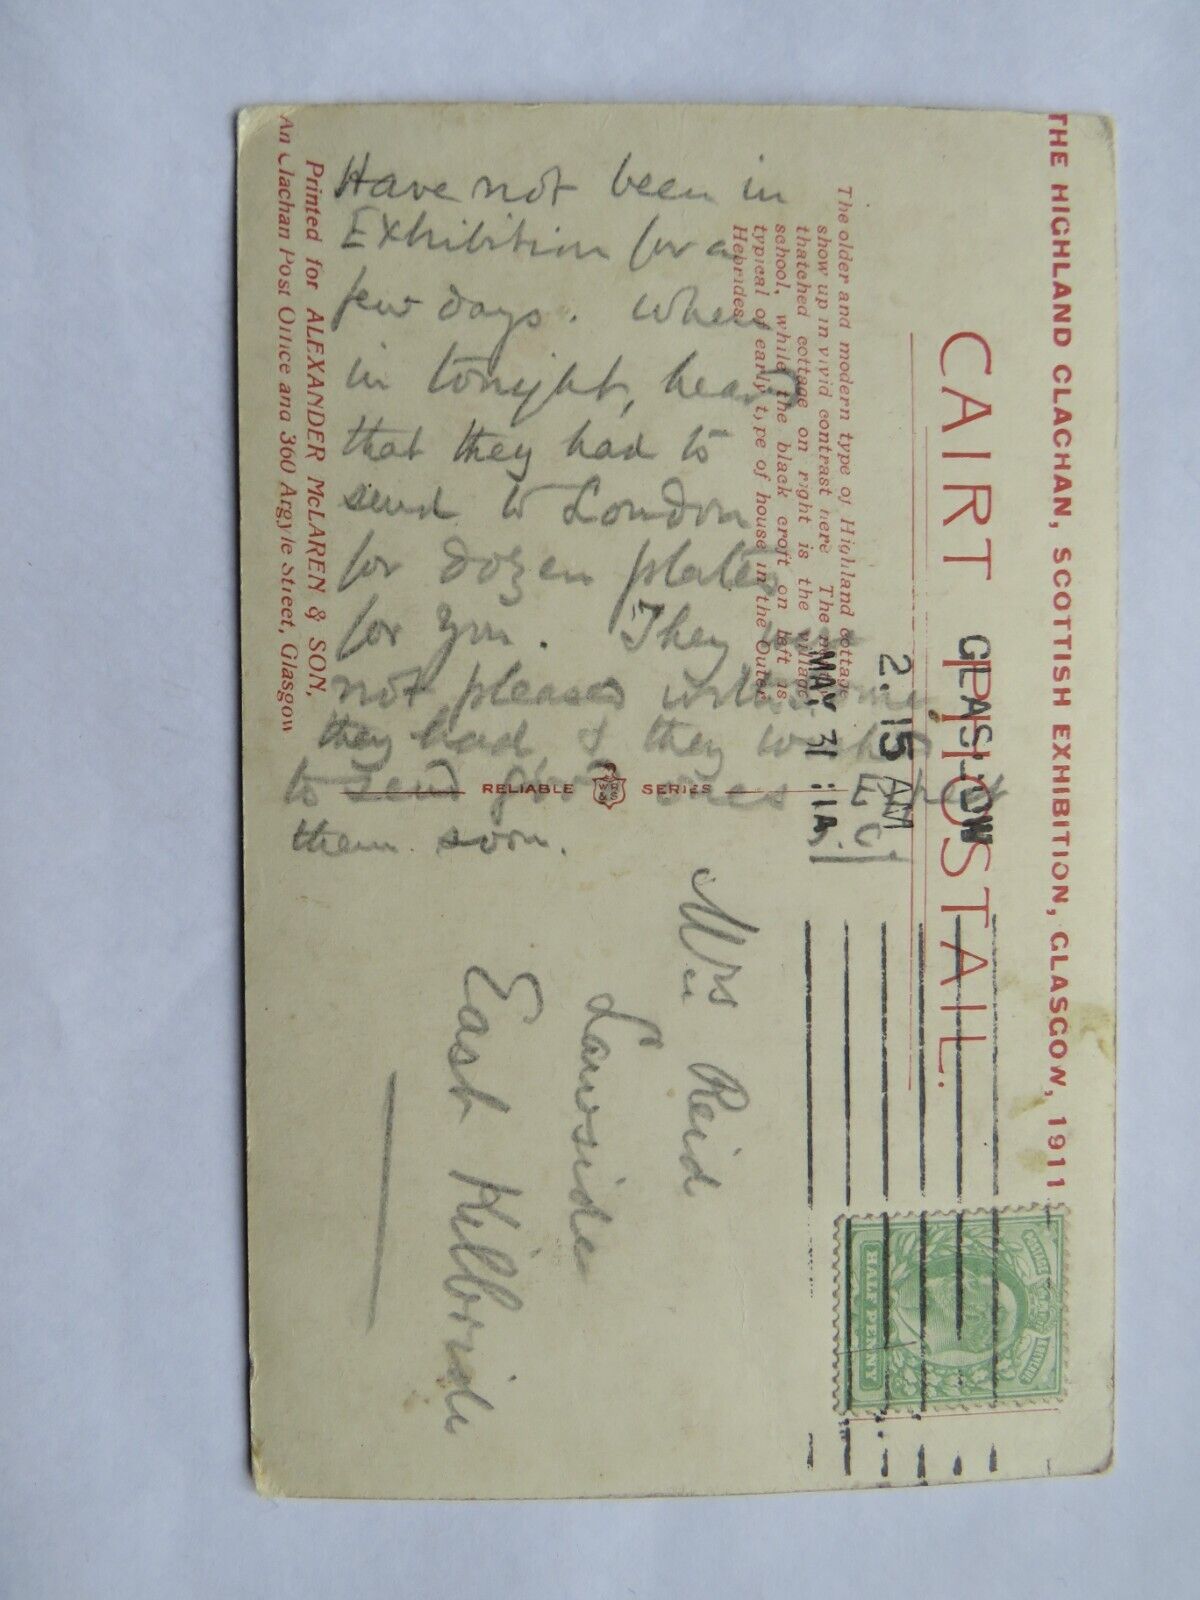 THE HIGHLAND CLACHAN, SCOTTISH EXHIBITION, GLASGOW, 1911
CAIRT PHOSTAIL.
GLASGOW
2.15 AM
MAY 31
The older and modern type of Highland cottage
show up in vivid contrast here The
thatched cottage on right is the village
school, while the black croft on left is
typical of early type of house in the Outer
Hebrides.
Have not been in
Exhibition for a
few days. When
in tonight, heard
that they had to
send to London
for dozen plates
for you. They
not pleased with some
they had & they
to send good ones
them soon.
E.C.
RELIABLE WR&S SERIES
Printed for ALEXANDER McLAREN & SON,
An Clachan Post Office and 360 Argyle Street, Glasgow
Mrs Reid
Lawside
East Kilbride
POSTAGE REVENUE
HALF PENNY